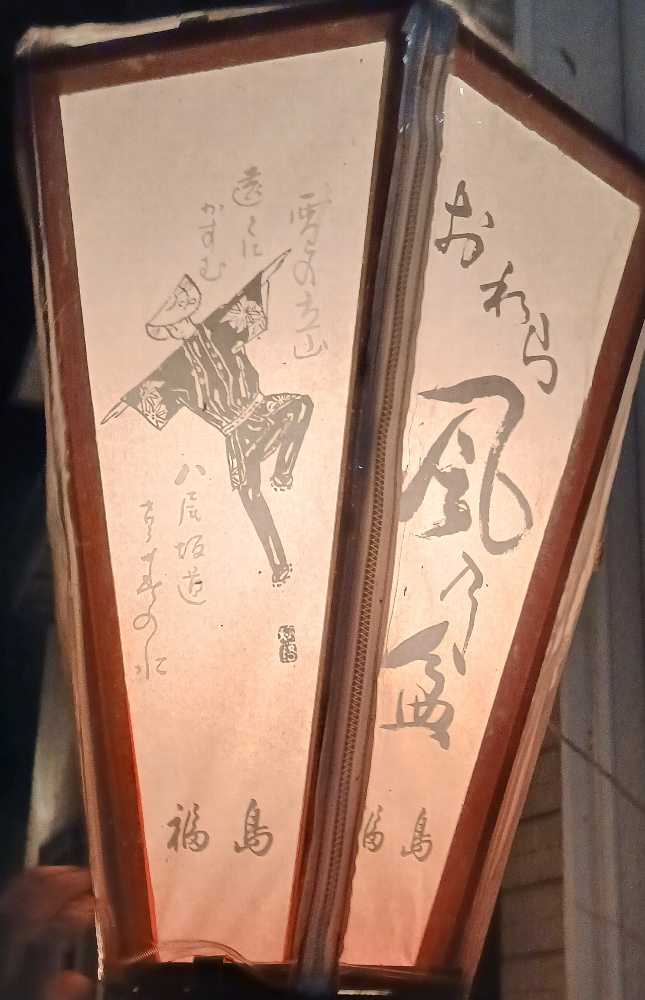 おわら
風乃盆
福島
雪の立山
遠くに
かすむ
八尾坂道
の水
福島